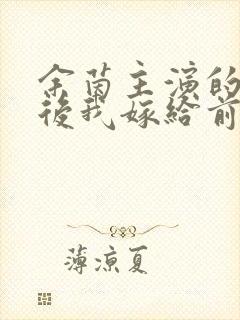 余茵主演的
後我嫁給前
薄涼夏